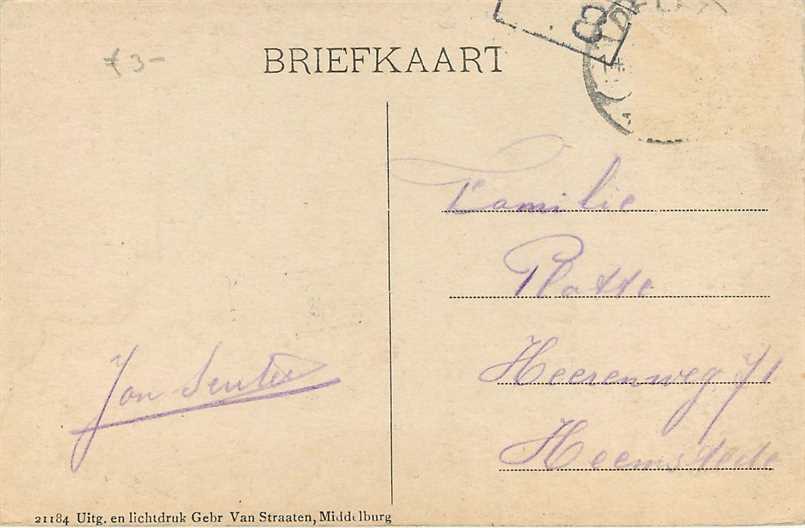 ƒ3-
8
BRIEFKAART
Familie
Platte
Heerenweg 71
Heemstede
Jan
21184 Uitg. en lichtdruk Gebr Van Straaten, Middelburg